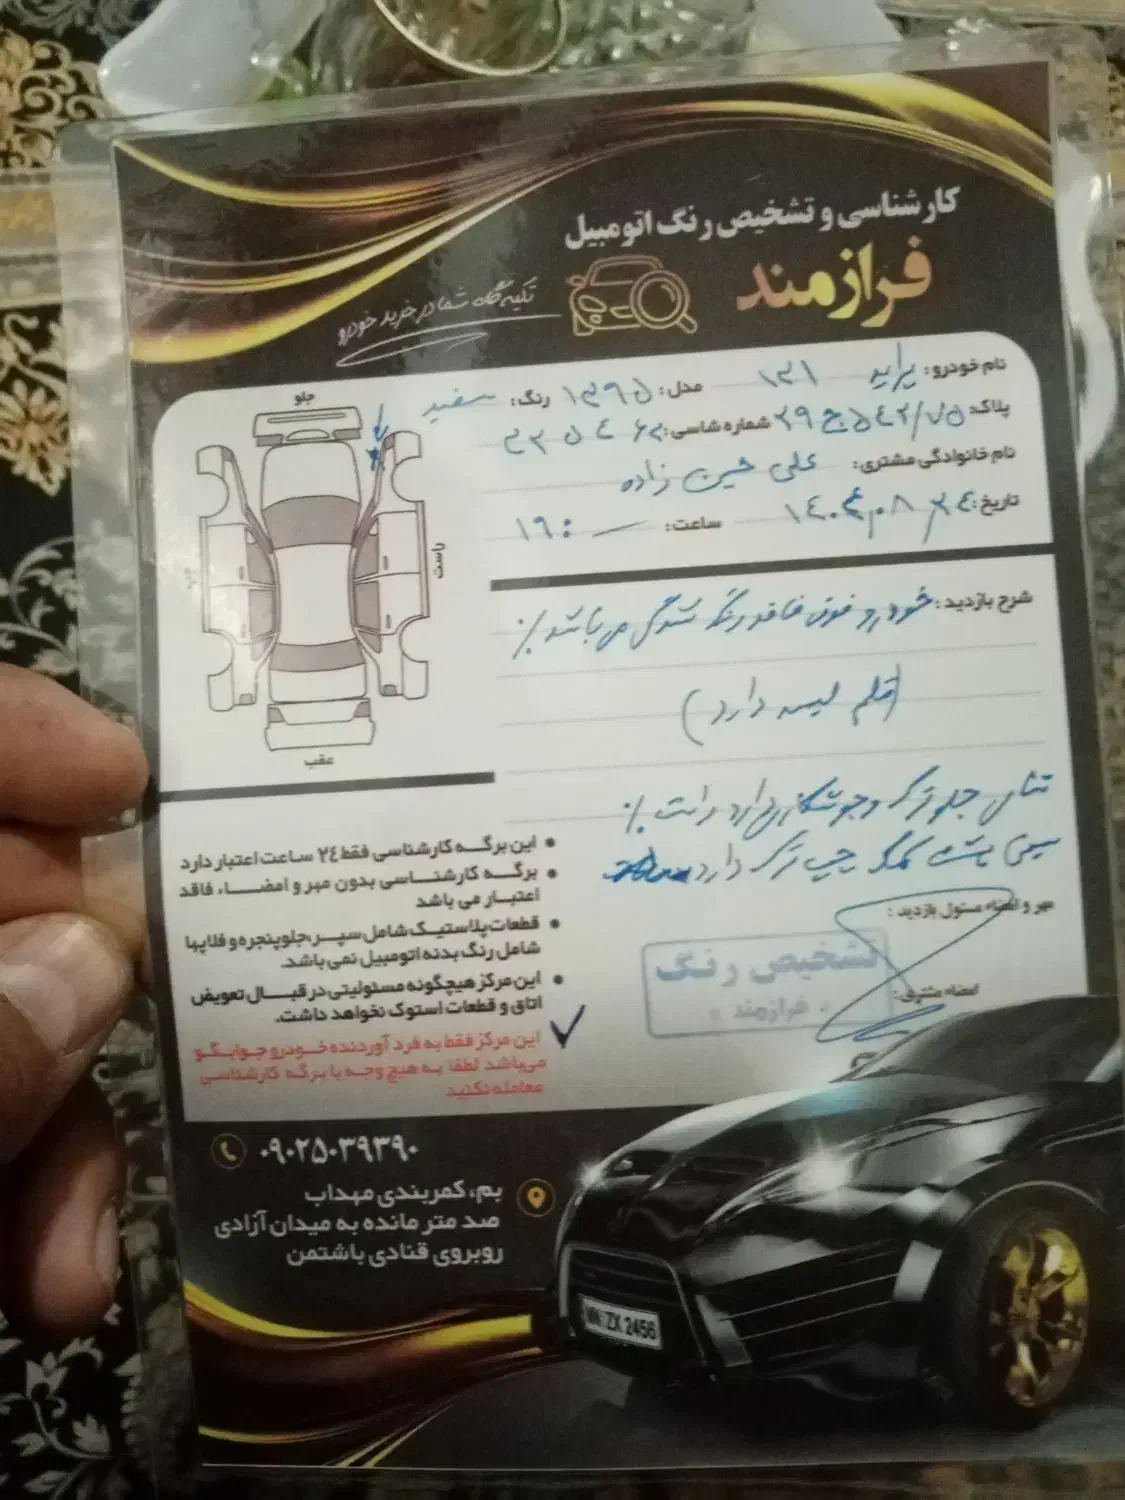 کارشناسی و تشخیص رنگ اتومبیل
فرازمند
تکیه‌گاه شما در خرید خودرو
نام خودرو: پراید ۱۳۱ مدل: ۱۳۹۵ رنگ: سفید
پلاک: ۵۴۲/۷۵ج۲۹ شماره شاسی:
نام خانوادگی مشتری: علی حسین زاده
تاریخ: ۱۴۰۴٫۰۸٫۲۴ ساعت: ۱۶:
جلو
راست
چپ
عقب
شرح بازدید: خودرو فوق فاقد رنگ شدگی می باشد ./
(قلم لیسه دارد)
جلو ترک و جوشکاری دارد راست ./
سینی پشت کمک چپ ترک دارد
مهر و امضاء مسئول بازدید :
تشخیص رنگ
فرازمند
امضاء مشتری:
• این برگه کارشناسی فقط ۲۴ ساعت اعتبار دارد
• برگه کارشناسی بدون مهر و امضاء، فاقد
اعتبار می باشد
• قطعات پلاستیک شامل سپر،جلوپنجره و فلاپها
شامل رنگ بدنه اتومبیل نمی باشد.
• این مرکز هیچگونه مسئولیتی در قبال تعویض
اتاق و قطعات استوک نخواهد داشت.
این مرکز فقط به فرد آوردنده خودرو جوابگو
می‌باشد لطفا به هیچ وجه با برگه کارشناسی
معامله نکنید
۰۹۰۲۵۰۳۹۳۹۰
بم، کمربندی مهداب
صد متر مانده به میدان آزادی
روبروی قنادی باشتمن
ZX 2456